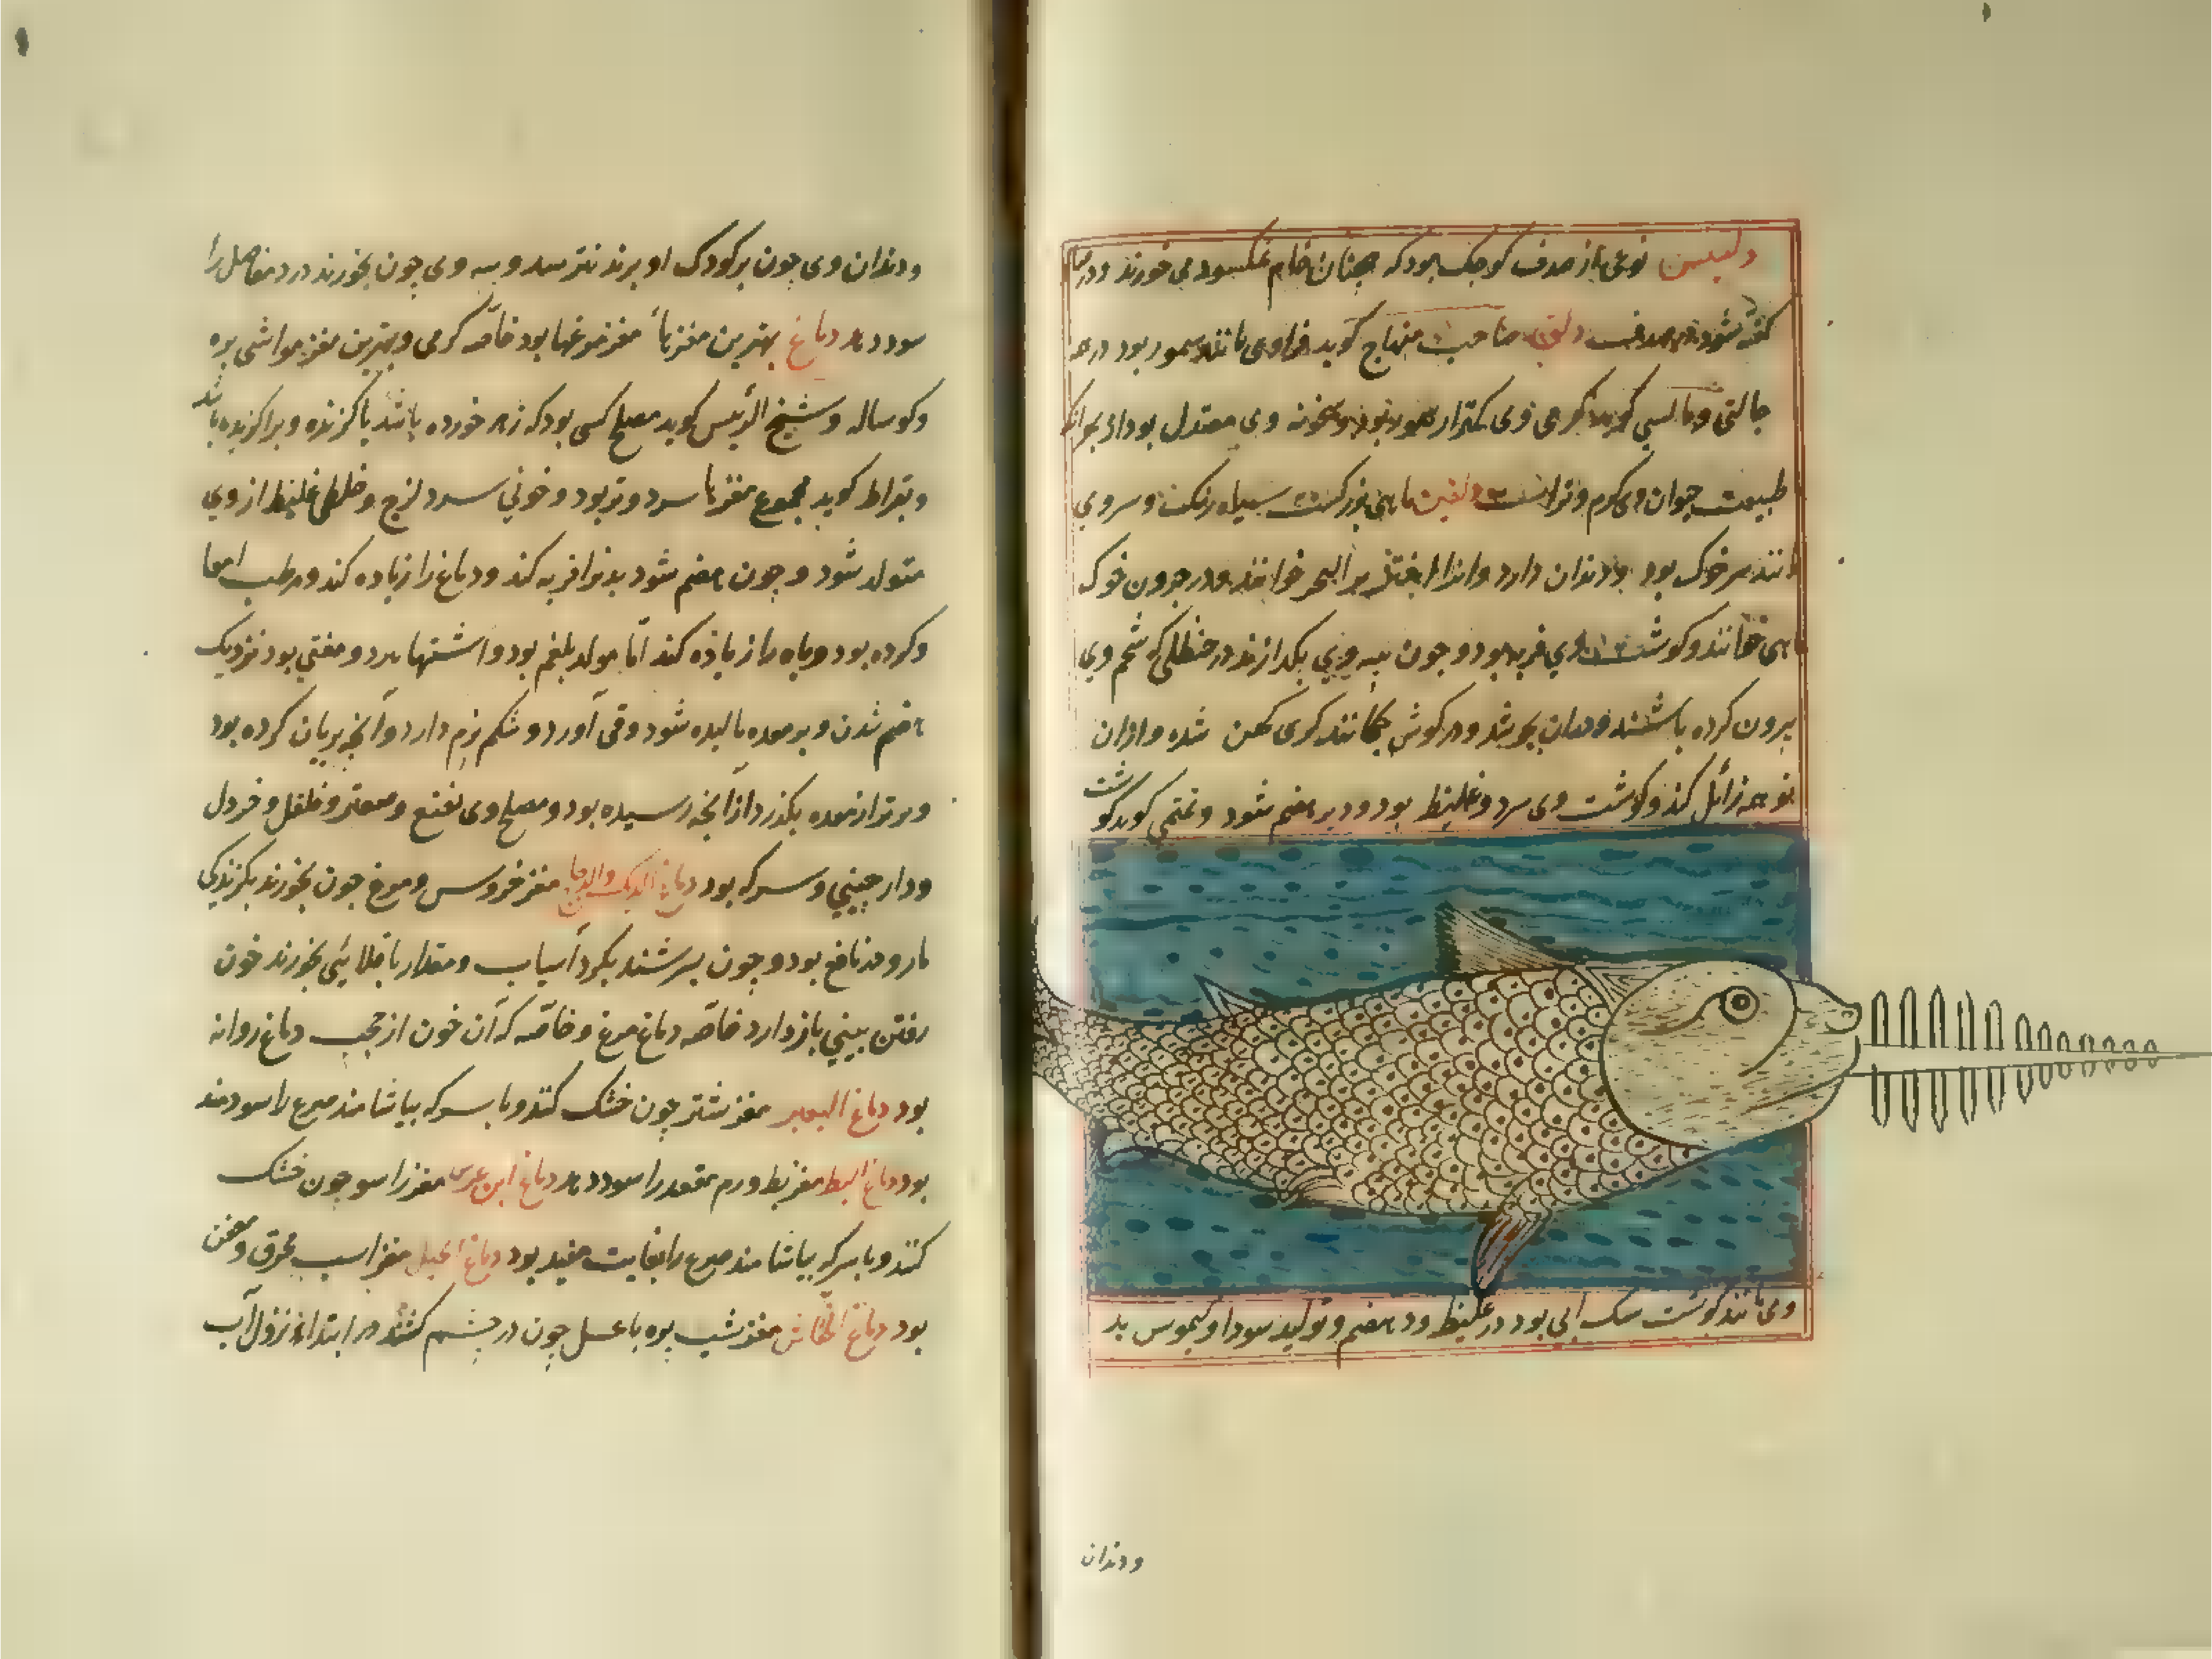 دلیس نوعی از صدف کوچک بود که همچنان خام نمکسود می خورند و در
گفته شود در صدف دلق صاحب منهاج کوید فراوی مانند سمور بود در
جالنی و مالسی کوید کرمی وی کمتر از سمور بود و سخونه وی معتدل بود از بهر انکه
طبیعت حیوان وی کرم و تر است دلفین ماهی بزرکست سیاه رنکت و سر وی
مانند سر خوک بود و دندان دارد و انرا خنزیر البحر خوانند و در جرون خوک
ماهی خوانند و کوشت وی فربه بود و چون پیه وی بکدازند در حنظلی که شحم وی
بیرون کرده باشند و در ان بجوشد و در کوش چکانند کری کهن شده و از ان
نو همه زائل کند و کوشت وی سرد و غلیظ بود و دیر هضم شود و تمیمی کوید کوشت
وی مانند کوشت سک ابی بود در غلیظ و دیر هضم و تولید سودا و کیموس بد
و دندان
و دندان وی چون بر کودک او برند نترسد و پیه وی چون بخورند درد مفاصل را
سود دهد دماغ بهترین مغزها مغز مرغها بود خاصه کرمی و بهترین مغز مواشی بره
و کوساله و شیخ الرئیس کوید مصلح کسی بود که زهر خورده باشد یا کزنده ویرا کزیده باشد
و بقراط کوید مجموع مغزها سرد و تر بود و خونی سرد لزج و خلطی غلیظ از وی
متولد شود و چون هضم شود بدنرا فربه کند و دماغ را زیاده کند و مرطب امعا
و کرده بود و باه را زیاده کند اما مولد بلغم بود و اشتها ببرد و مغثی بود نزدیک
هضم شدن و بر معده مالیده شود و قی آورد و شکم نرم دارد و آنچه بریان کرده بود
و بر تر از معده بکذرد از آنچه رسیده بود و مصلح وی نعنع و صعتر و فلفل و خردل
و دارچینی و سرکه بود دماغ الدیک والدجاج مغز خروس و مرغ چون بخورند بکزندکی
مار و مند نافع بود و چون بسرشند بکرد آسیاب و مقدار باقلائی بخورند خون
رفتن بینی باز دارد خاصه دماغ مرغ و خاصه که آن خون از حجب دماغ روانه
بود دماغ البعیر مغز شتر چون خشک کنند و با سرکه بیاشامند صرع را سودمند
بود دماغ البط مغز بط ورم مقعد را سود دهد دماغ ابن عرس مغز راسو چون خشک
کنند و با سرکه بیاشامند صرع را بغایت مفید بود دماغ الخیل مغز اسب محرق و معفن
بود دماغ الخفاش مغز شب پره با عسل چون در چشم کشند در ابتداء نزول آب